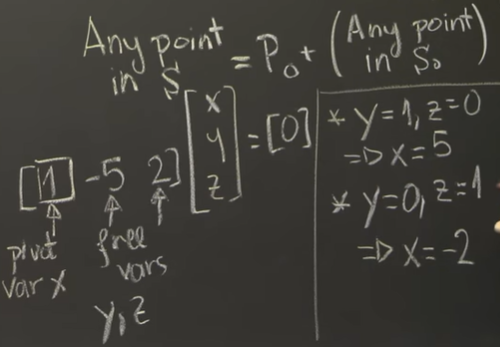 Any point in S = P₀ + (Any point in S₀)
[1 -5 2] [x y z] = [0]
pivot var x
free vars
y, z
* y=1, z=0
=> x=5
* y=0, z=1
=> x=-2